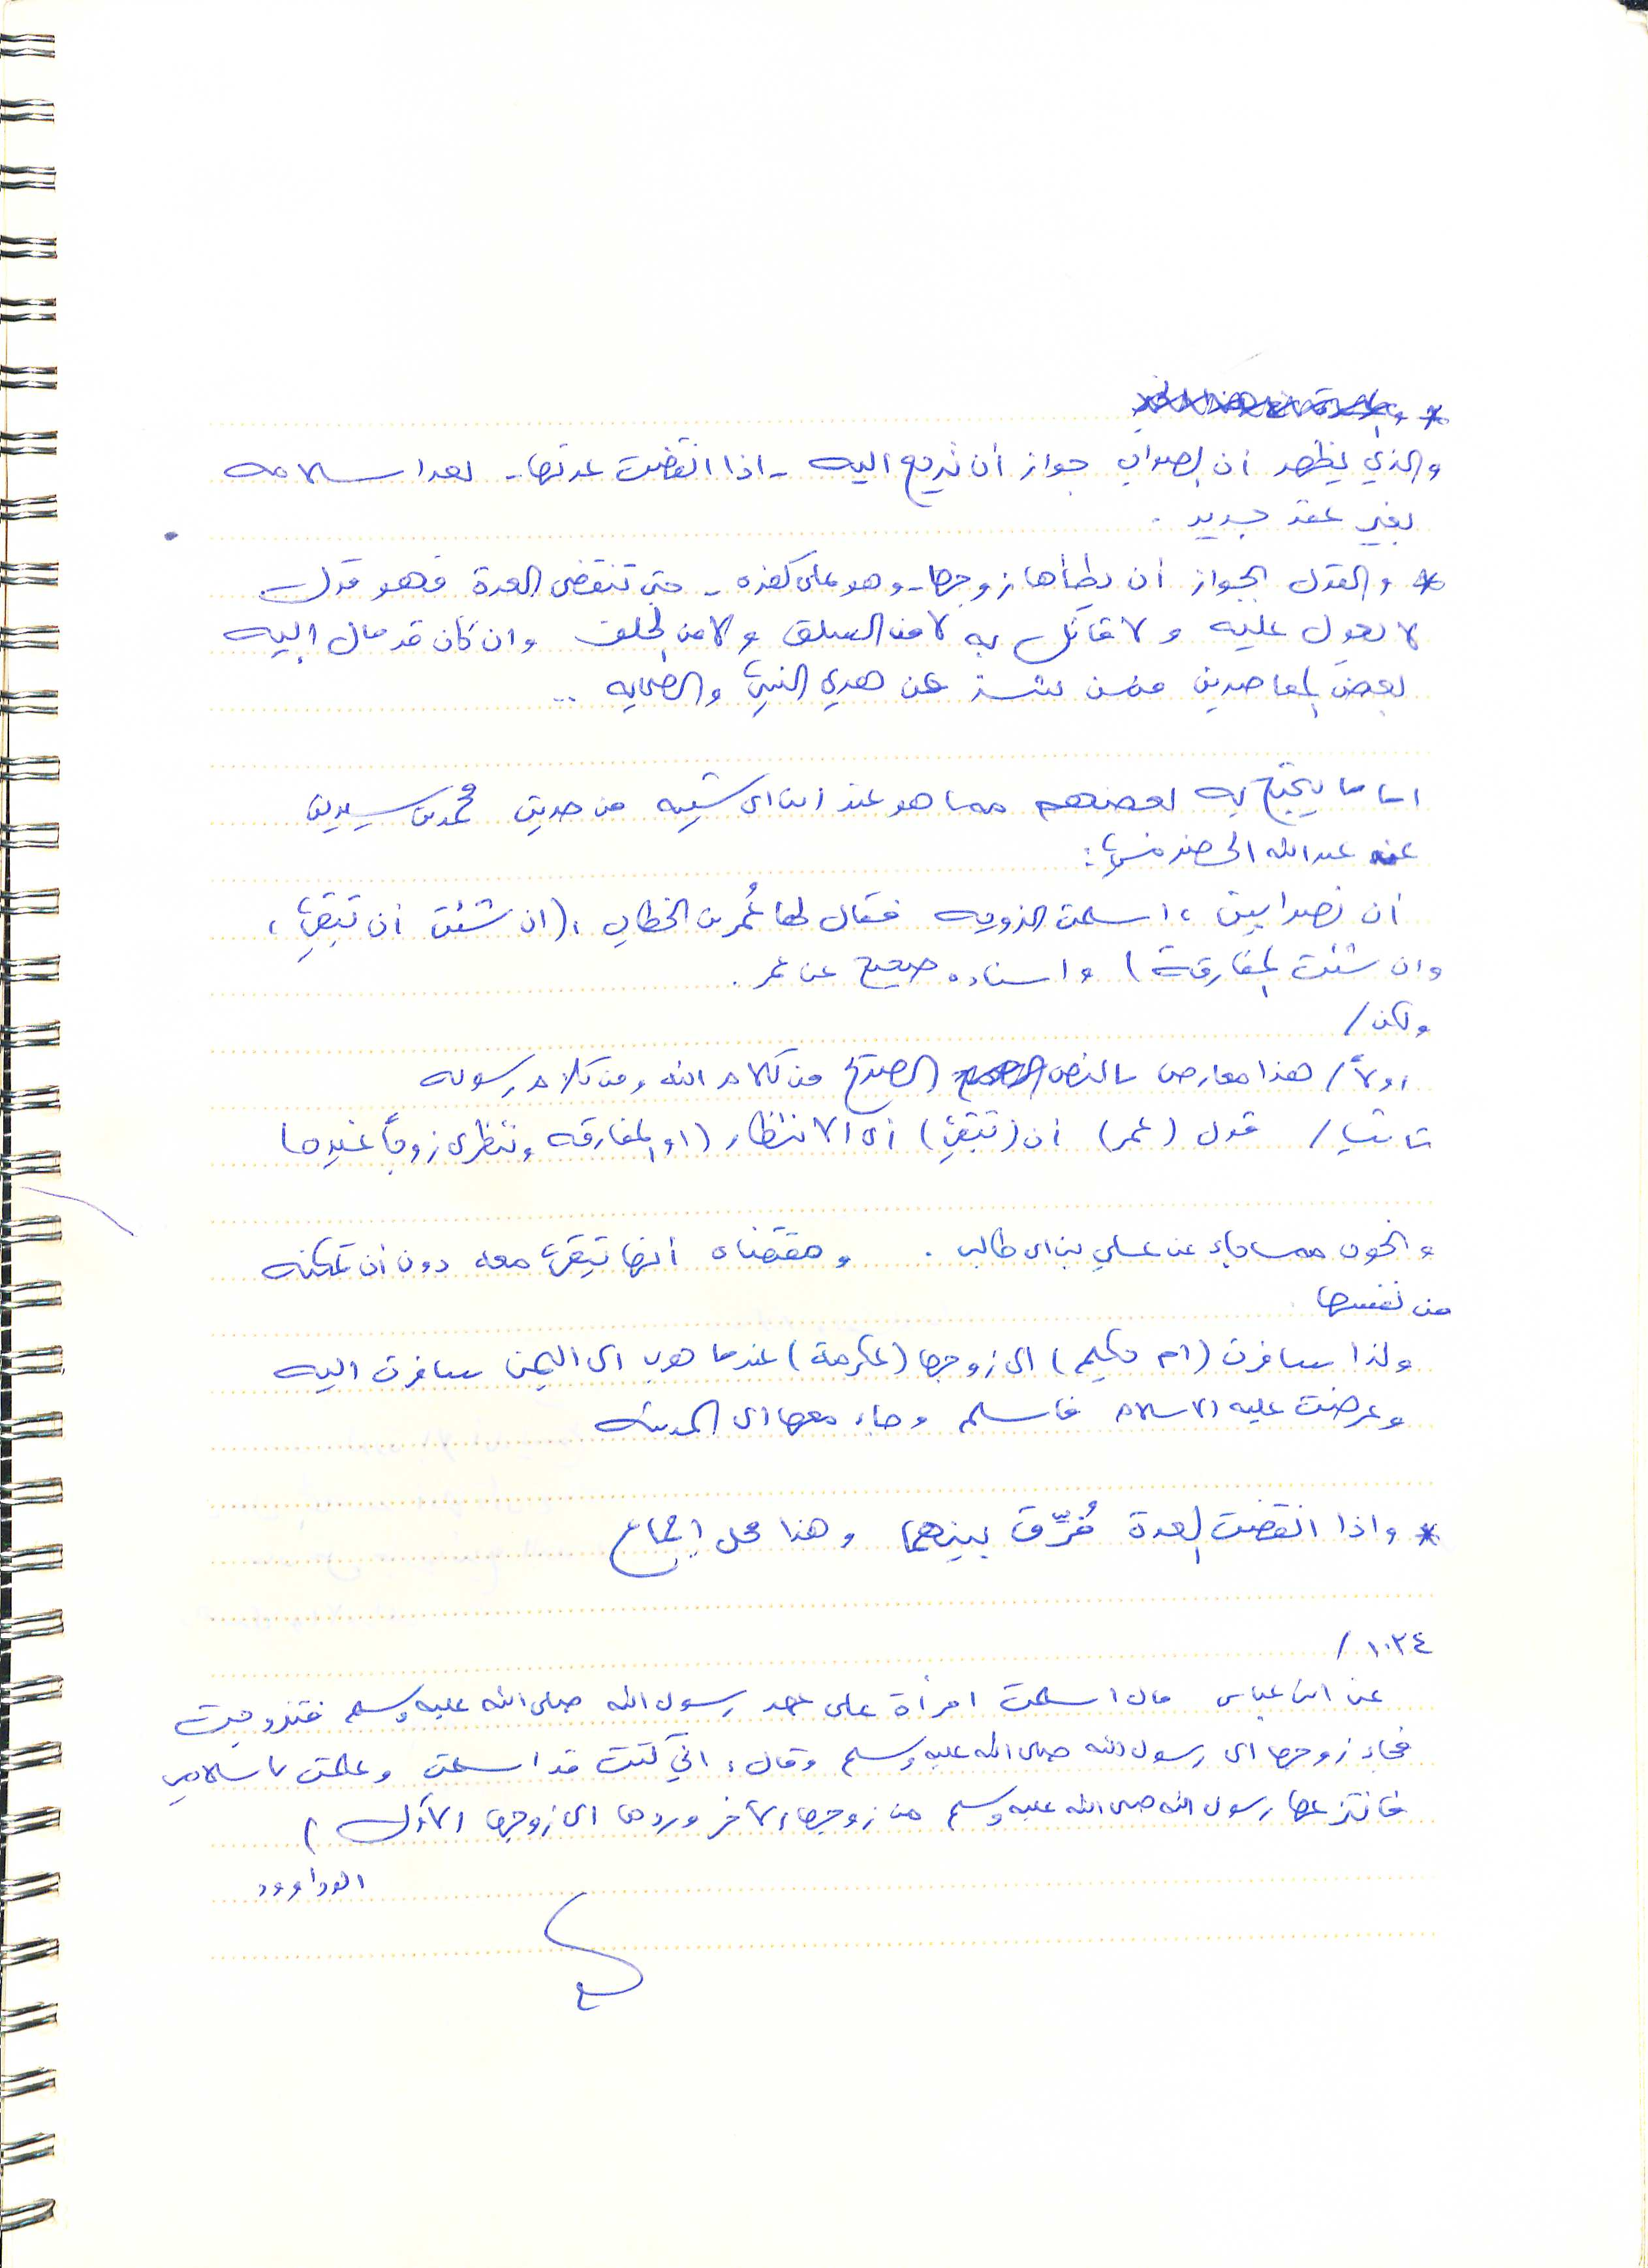 والذي يظهر أن الصواب جواز أن ترجع اليه - اذا انقضت عدتها - بعد اسلامه
بغير عقد جديد .
* والقول بجواز أن يطأها زوجها - وهو على كفره - حتى تنقضى العدة فهو قول
لا يعول عليه ولا قائل به لا من السلف ولا من الخلف وان كان قد مال إليه
بعض المعاصرين ممن شذ عن هدي النبي والصحابه ..
اما ما يحتج به بعضهم مما هو عند ابن ابى شيبه من حديث محمد بن سيرين
عن عبد الله الخ :
أن نصرانيين ، اسلمت الزوجه فقال لها عُمر بن الخطاب ، (ان شئت أن تبقي ،
وان شئت المفارقة ) واسناده صحيح عن عمر .
ولكن /
اولاً / هذا معارض بالنص الصريح من كلام الله ومن كلام رسوله
ثانيا / قول (عمر) أن (تبقي) أى الانتظار (او المفارقه وتنظرى زوجاً غيره
والخوف مما جاء عن علي بن ابى طالب . ومقتضاه أنها تبقى معه دون أن تمكنه
من نفسها
ولذا سافرت (ام حكيم) الى زوجها (عكرمة) عندما هرب الى اليمن سافرت اليه
وعرضت عليه الاسلام فاسلم وجاء معها الى المدينه
* واذا انقضت العدة فُرِّق بينهما وهذا محل إجماع
١٠٣٤ /
عن ابن عباس قال اسلمت امرأة على عهد رسول الله صلى الله عليه وسلم فتزوجت
فجاء زوجها الى رسول الله صلى الله عليه وسلم وقال ، اني كنت قد اسلمت وعلمت باسلامي
فانتزعها رسول الله صلى الله عليه وسلم من زوجها الآخر وردها الى زوجها الأول )
ابو داوود